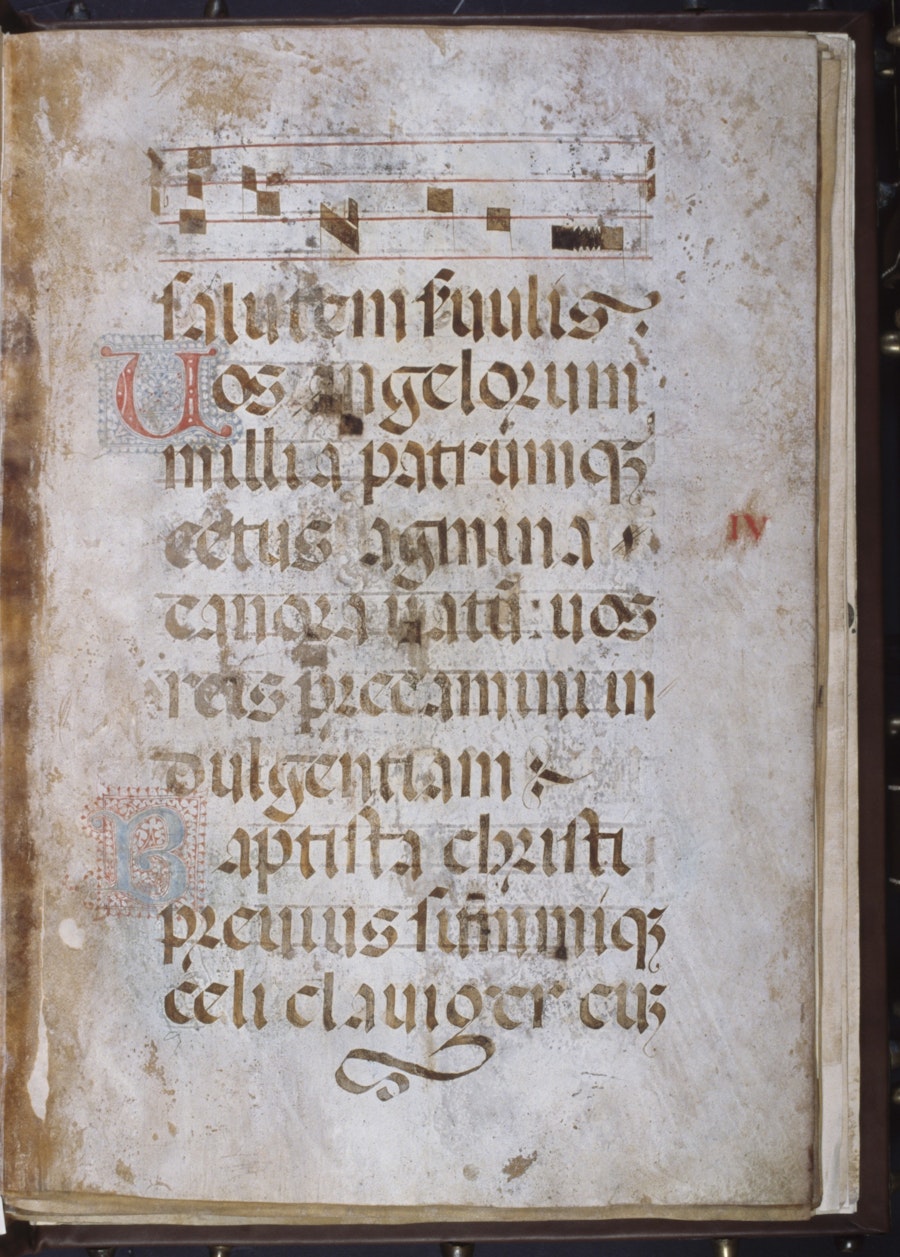 salutem s̃uulis.
Uos angelorum
millia patrumqꝫ
cetus agmina
canora uatũ: uos
reis precamini in
dulgentiam
IV
Baptista christi
preuius sũmiqꝫ
celi clauiger cuꝫ